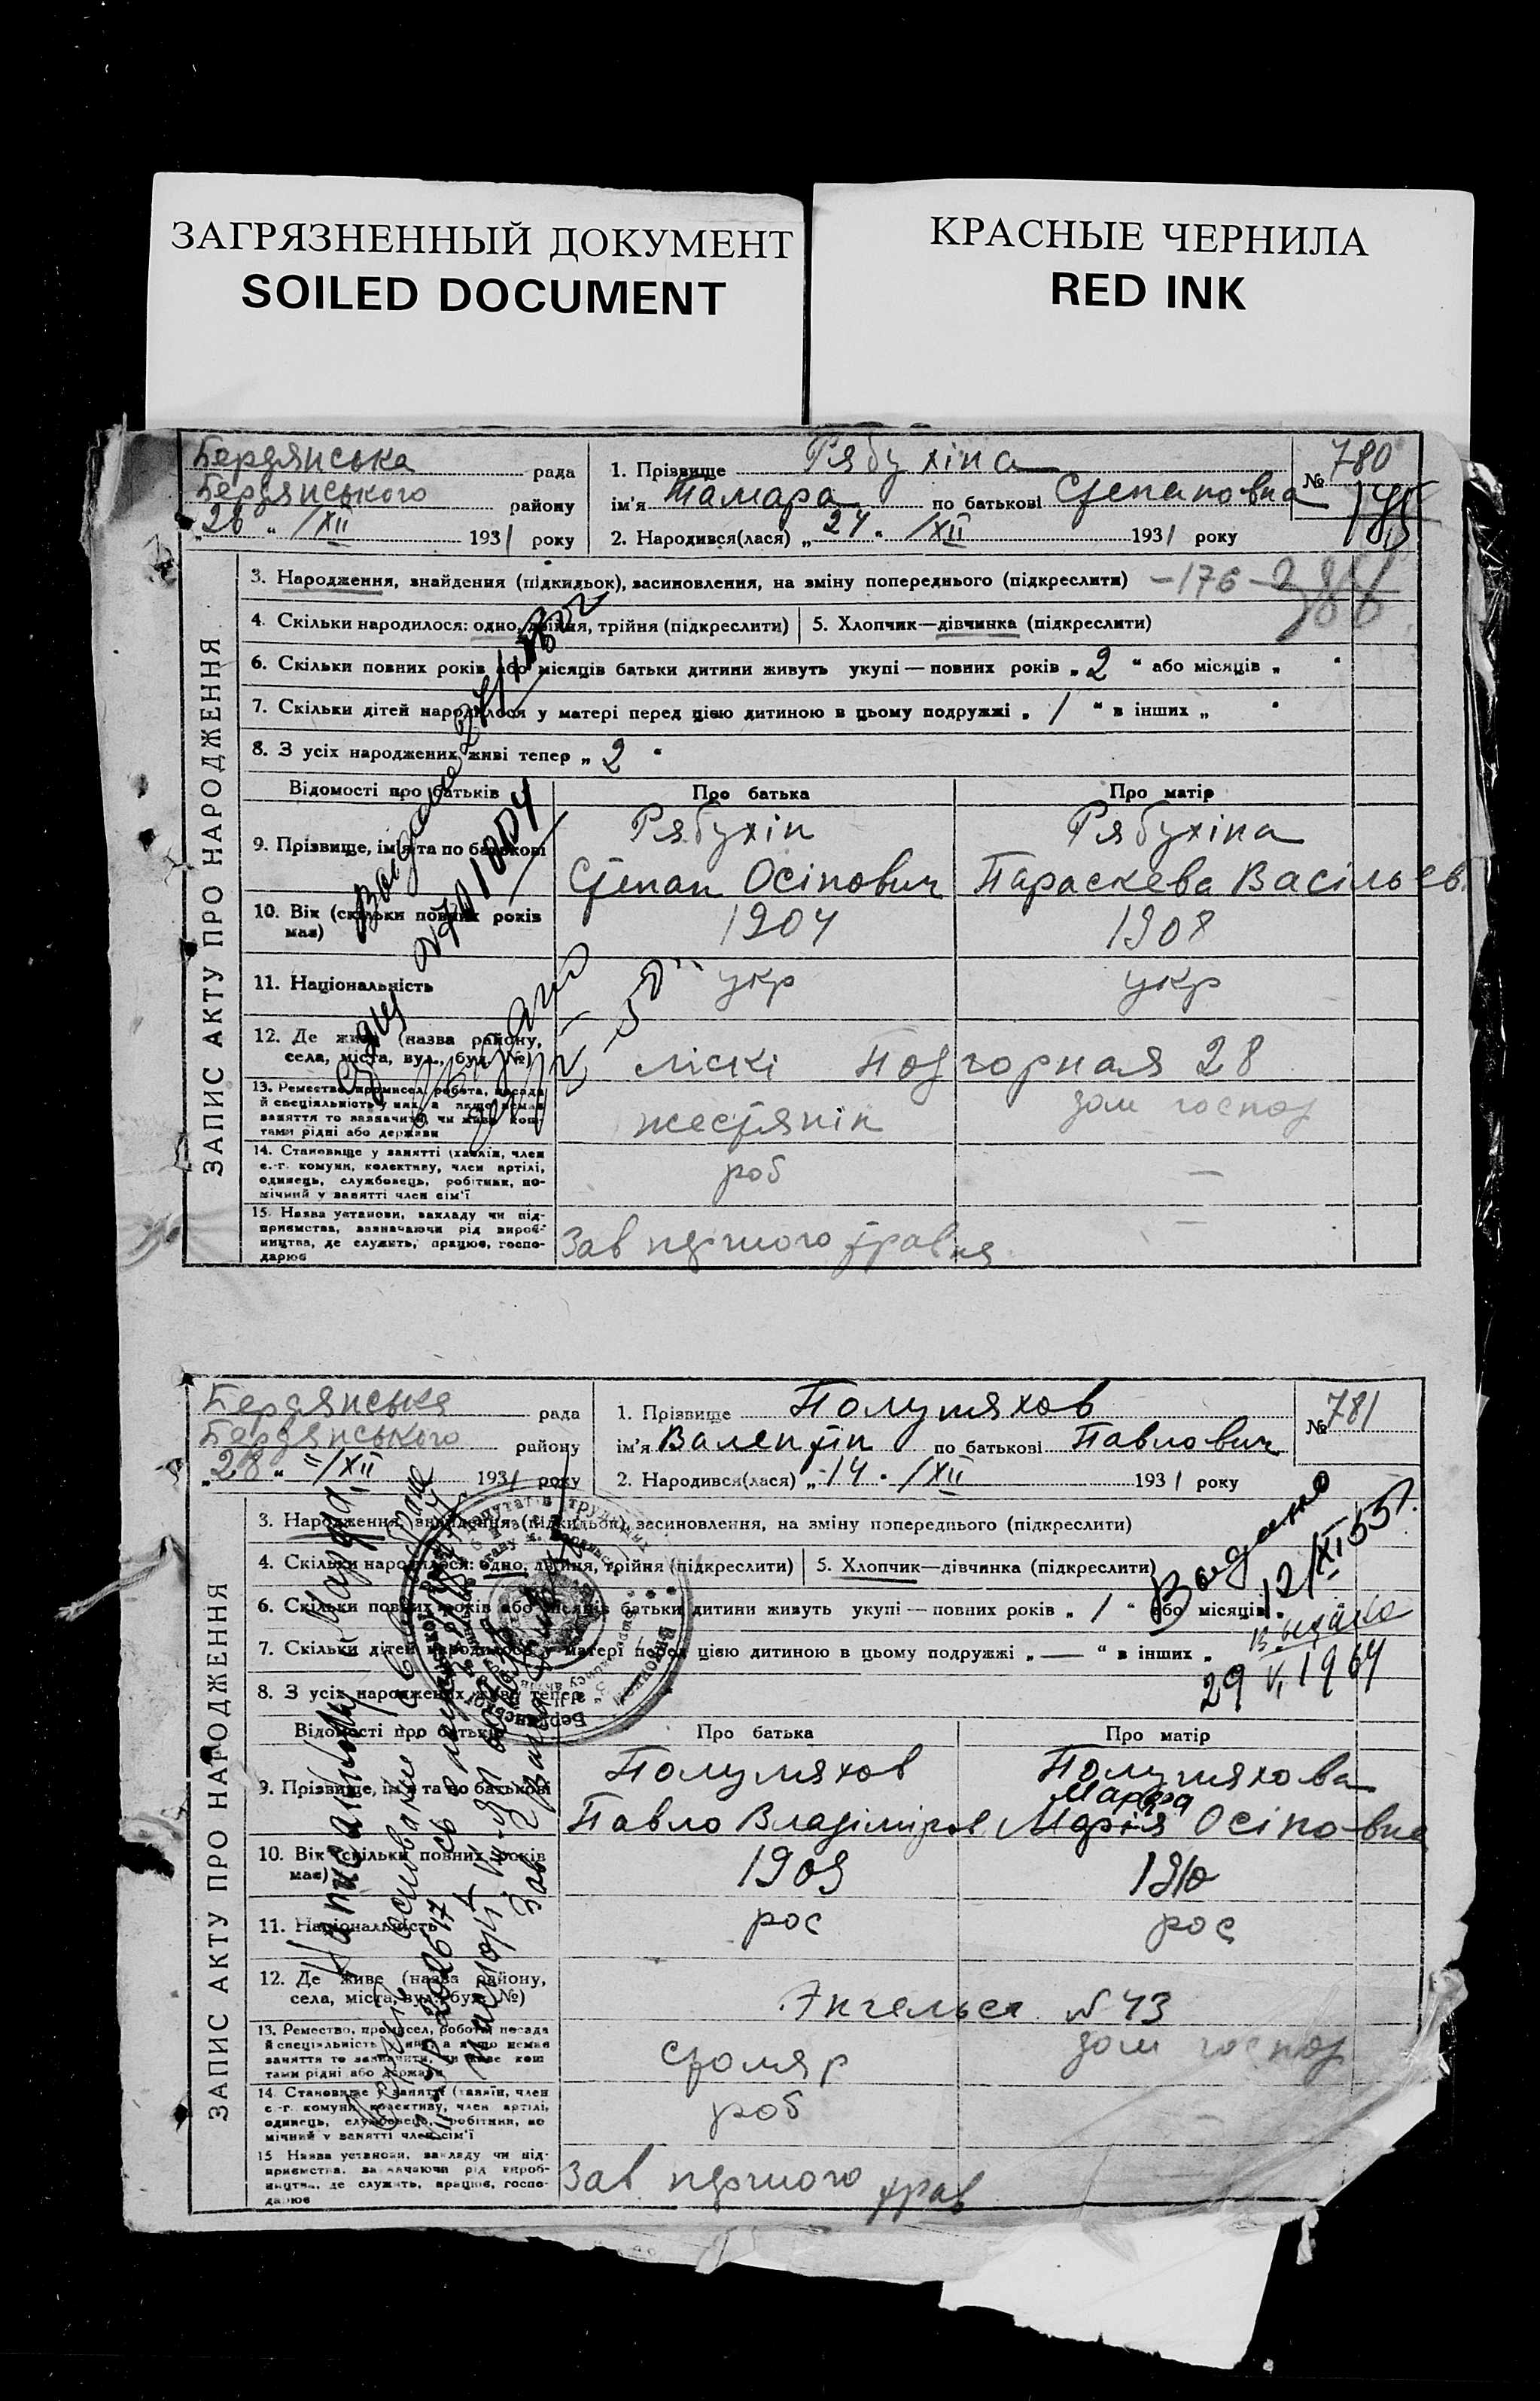 ЗАГРЯЗНЕННЫЙ ДОКУМЕНТ
SOILED DOCUMENT
КРАСНЫЕ ЧЕРНИЛА
RED INK
ЗАПИС АКТУ ПРО НАРОДЖЕННЯ
Бердянська рада
Бердянського району
„28“ /XII 1931 року
1. Прізвище Рябухіна
ім'я Тамара по батькові Степановна
2. Народився(лася) „24“ /XII 1931 року
№ 780
185
3. Народження, знайдення (підкидьок), засиновлення, на зміну попереднього (підкреслити) -176-
386
4. Скільки народилося: одно, двійня, трійня (підкреслити) 5. Хлопчик—дівчинка (підкреслити)
6. Скільки повних років або місяців батьки дитини живуть укупі — повних років „2“ або місяців „ “
7. Скільки дітей народилося у матері перед цією дитиною в цьому подружжі „1“ в інших „ “
8. З усіх народжених живі тепер „2“
Відомості про батьків Про батька Про матір
9. Прізвище, ім'я та по батькові Рябухін Рябухіна
Степан Осіпович Параскева Васільев.
10. Вік (скільки повних років має) 1904 1908
11. Національність укр укр
12. Де живе (назва району, села, міста, вул., буд. №) Ліскі Подгорная 28
13. Ремество, промисел, робота, посада й спеціяльність у них, а якщо немає заняття то зазначити, чи живе коштами рідні або держави жестянік дом господ
14. Становище у занятті (хазяїн, член с.-г. комуни, колективу, член артілі, одинець, службовець, робітник, помічний у занятті член сім'ї роб —
15. Назва установи, закладу чи підприємства, зазначаючи рід виробництва, де служить, працює, господарює Зав першого травня —
50
ЗАПИС АКТУ ПРО НАРОДЖЕННЯ
Бердянська рада
Бердянського району
„28“ /XII 1931 року
1. Прізвище Полумяхов
ім'я Валентін по батькові Павлович
2. Народився(лася) „14“ /XII 1931 року
№ 781
3. Народження, знайдення (підкидьок), засиновлення, на зміну попереднього (підкреслити)
4. Скільки народилося: одно, двійня, трійня (підкреслити) 5. Хлопчик—дівчинка (підкреслити)
6. Скільки повних років або місяців батьки дитини живуть укупі — повних років „1“ або місяців „ “
7. Скільки дітей народилося у матері перед цією дитиною в цьому подружжі „—“ в інших „
8. З усіх народжених живі тепер
Видано
12/XI 55 г.
Выдано
29 V. 1964
Відомості про батьків Про батька Про матір
9. Прізвище, ім'я та по батькові Полумяхов Полумяхова
Марфа
Павло Владіміров. Марія Осіповна
10. Вік (скільки повних років має) 1909 1910
11. Національність рос рос
12. Де живе (назва району, села, міста, вул., буд. №) Энгельса №43
13. Ремество, промисел, робота, посада й спеціяльність у них, а якщо немає заняття то зазначити, чи живе коштами рідні або держави столяр дом господ
14. Становище у занятті (хазяїн, член с.-г. комуни, колективу, член артілі, одинець, службовець, робітник, помічний у занятті член сім'ї роб
15. Назва установи, закладу чи підприємства, зазначаючи рід виробництва, де служить, працює, господарює Зав першого трав